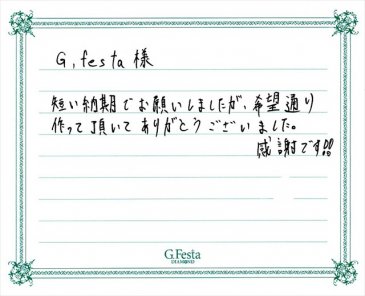 G,festa 様
短い納期でお願いしましたが、希望通り
作って頂いてありがとうございました。
感謝です!!
G.Festa
DIAMOND